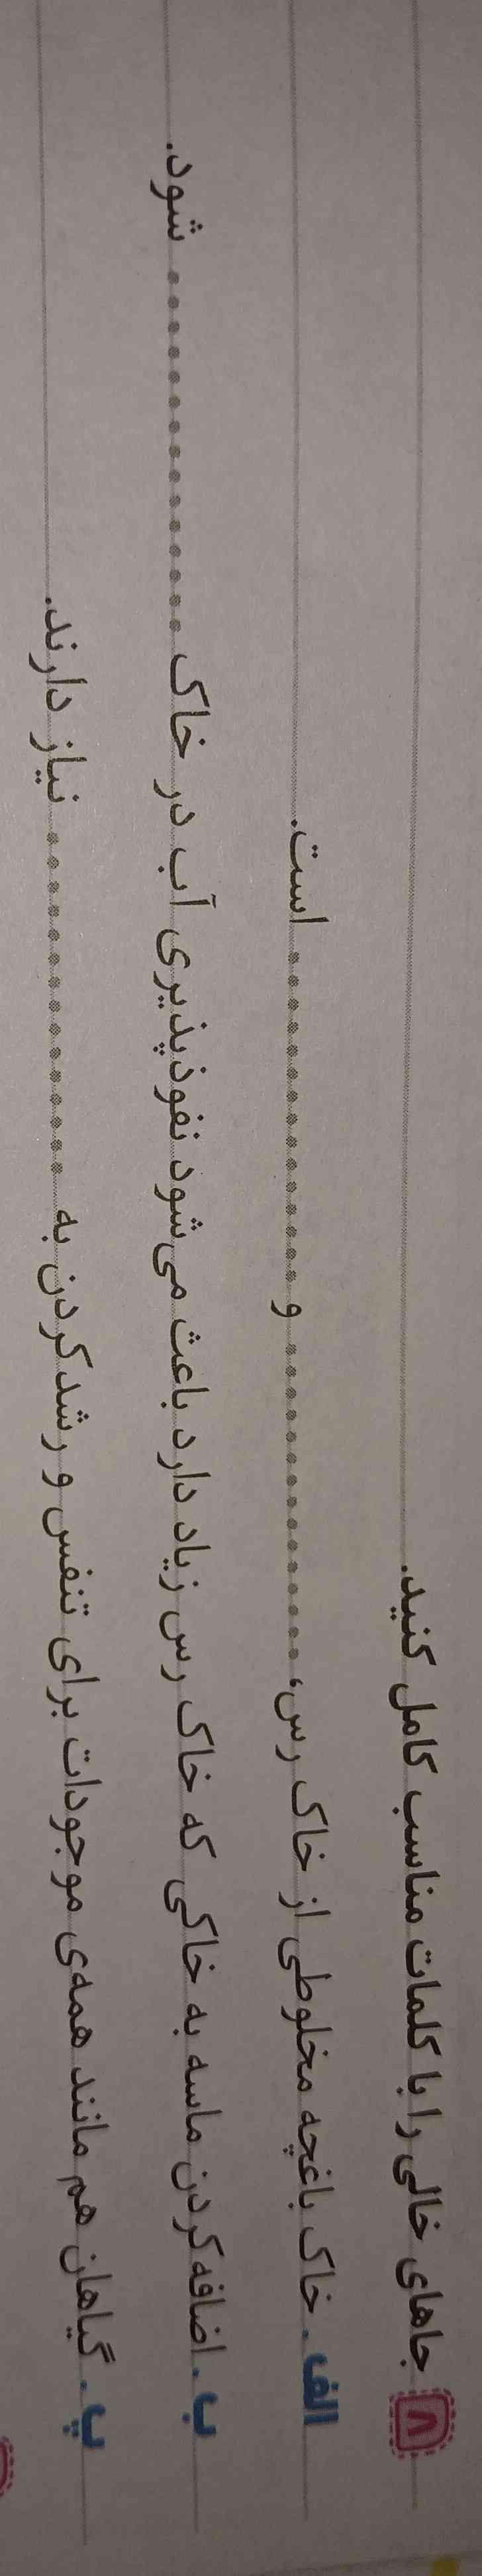 ۸ جاهای خالی را با کلمات مناسب کامل کنید.
الف. خاک باغچه مخلوطی از خاک رس، .................... و .................... است.
ب. اضافه کردن ماسه به خاکی که خاک رس زیاد دارد باعث می‌شود نفوذپذیری آب در خاک .................... شود.
پ. گیاهان هم مانند همه‌ی موجودات برای تنفس و رشد کردن به .................... نیاز دارند.